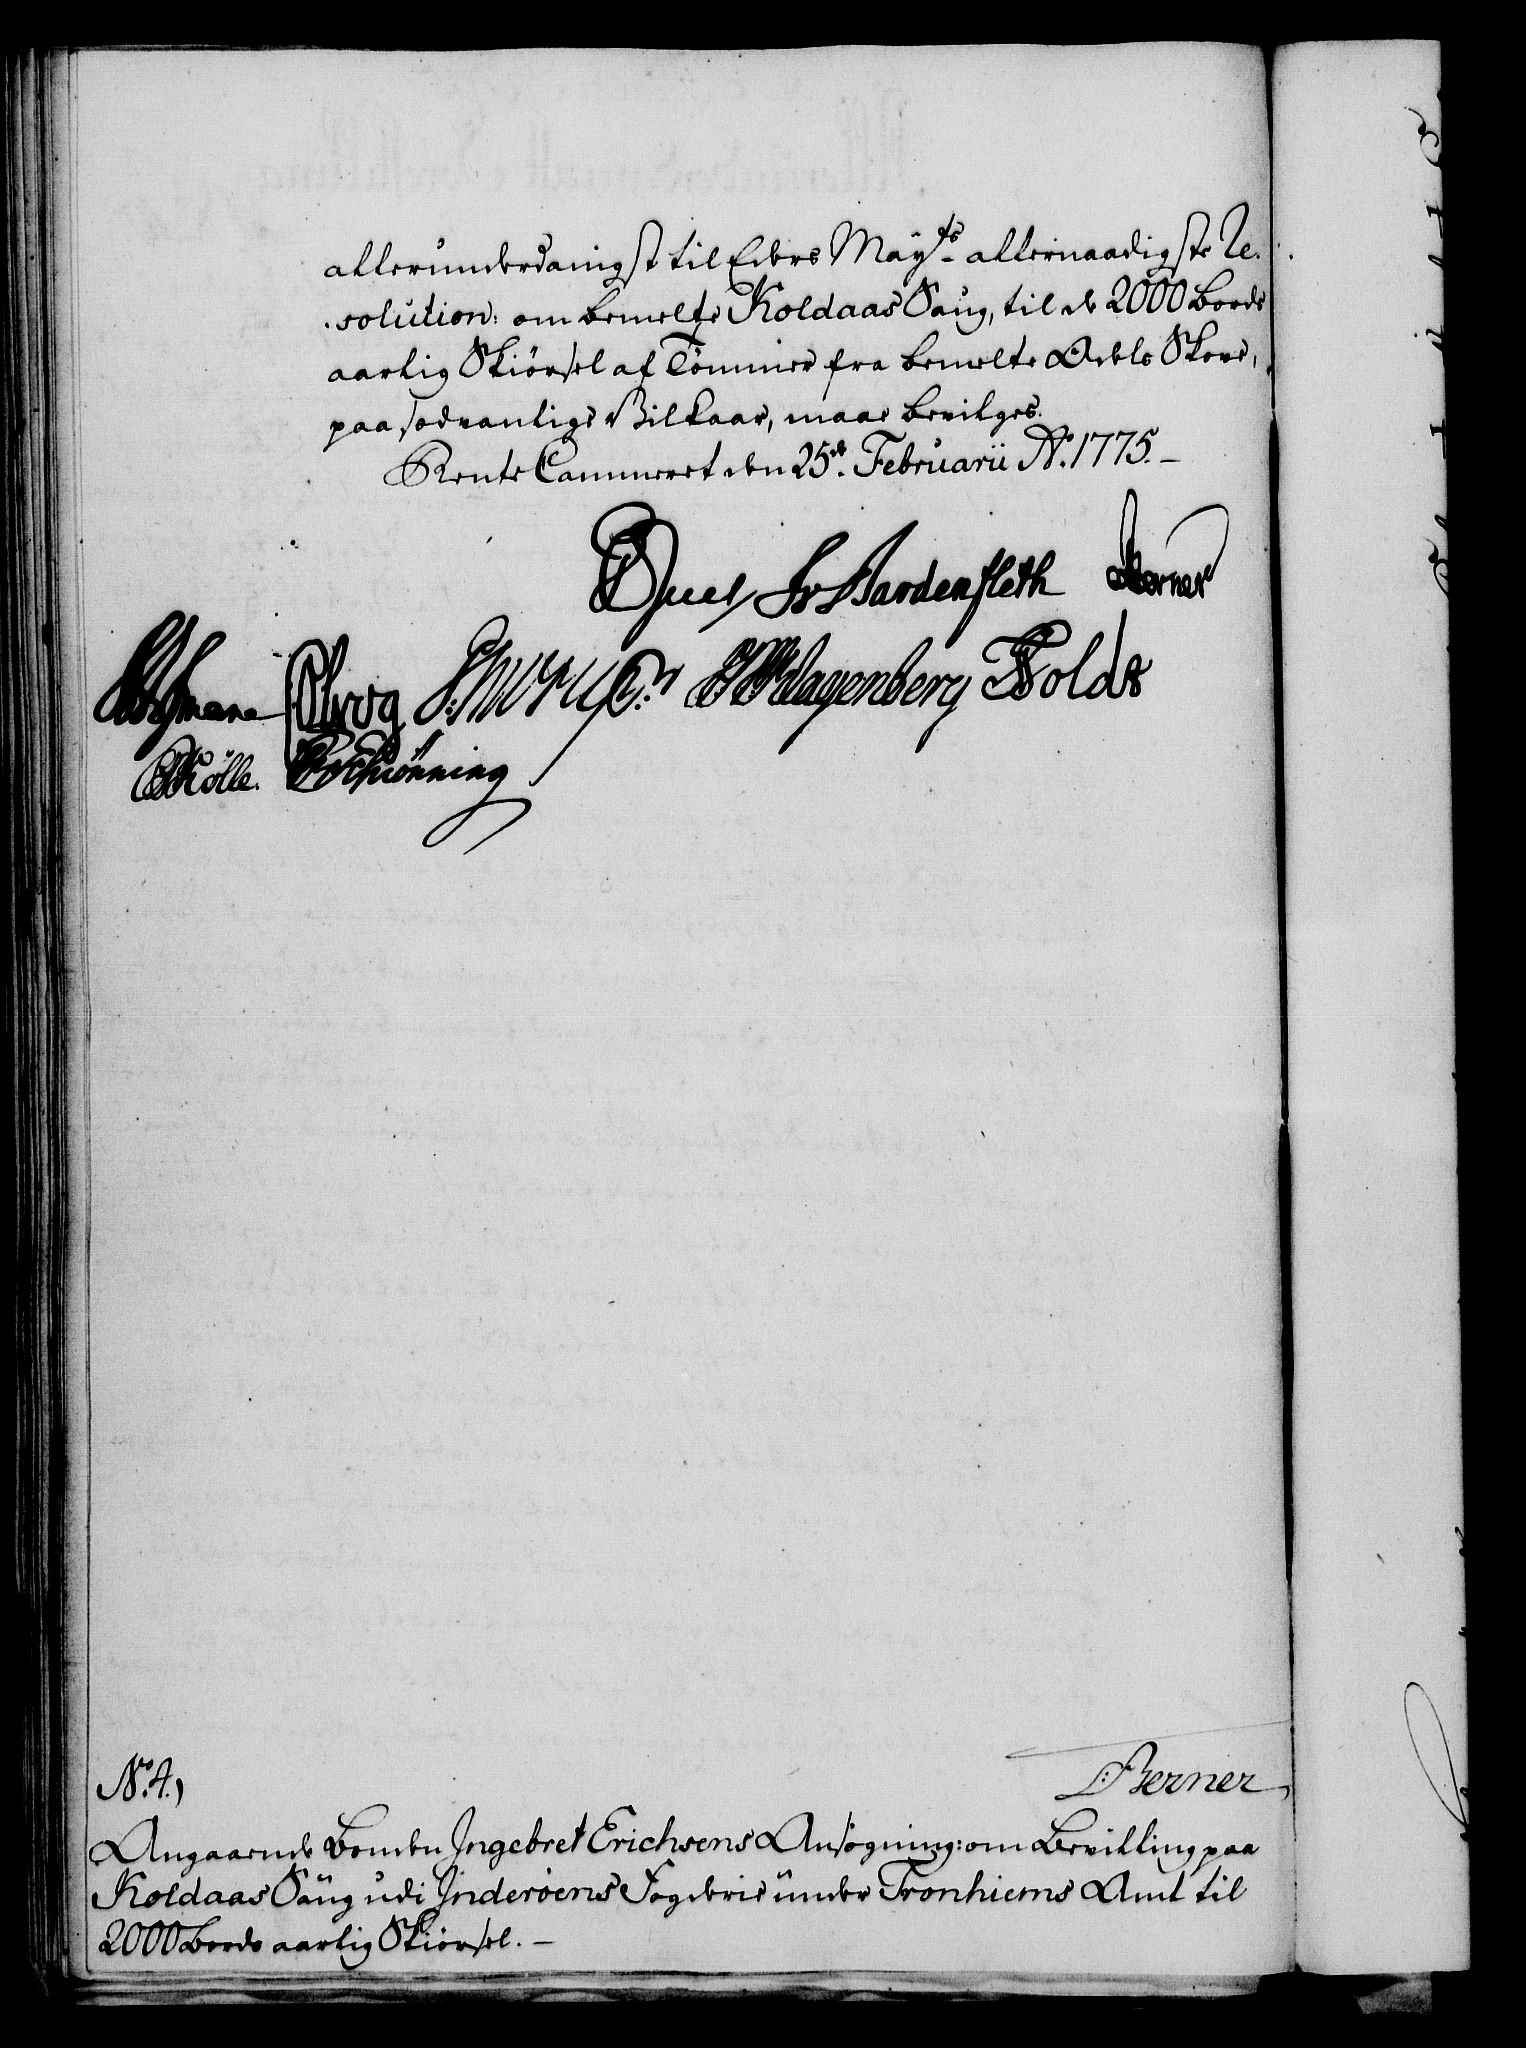 allerunderdanigst til Eders Mayts allernaadigste Re-
solution: om bemelte Koldaas Saug, til de 2000 Bords
aarlig Skiørsel af Tømmer fra bemelte Odels Skove,
paa sædvanlige Vilkaar, maae bevilges.
Rente Cammeret den 25de Februarii Ao. 1775. –
Juel Fr Bardenfleth Berner
Olrog Wagenberg Holdt
Kölle. Schiønning
No. 4.)
Berner
Angaaende Bonden Ingebret Erichsens Ansøgning: om Bevilling paa
Koldaas Saug udi Inderøens Fogderie under Tronhiems Amt til
2000 Bords aarlig Skiørsel. –